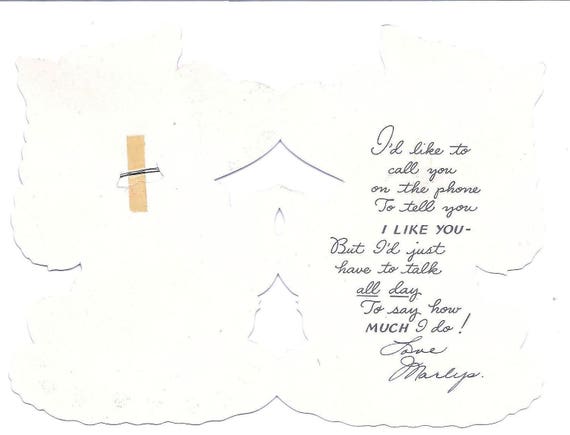 I'd like to
call you
on the phone
To tell you
I LIKE YOU-
But I'd just
have to talk
all day
To say how
MUCH I do!
Love
Marlys.